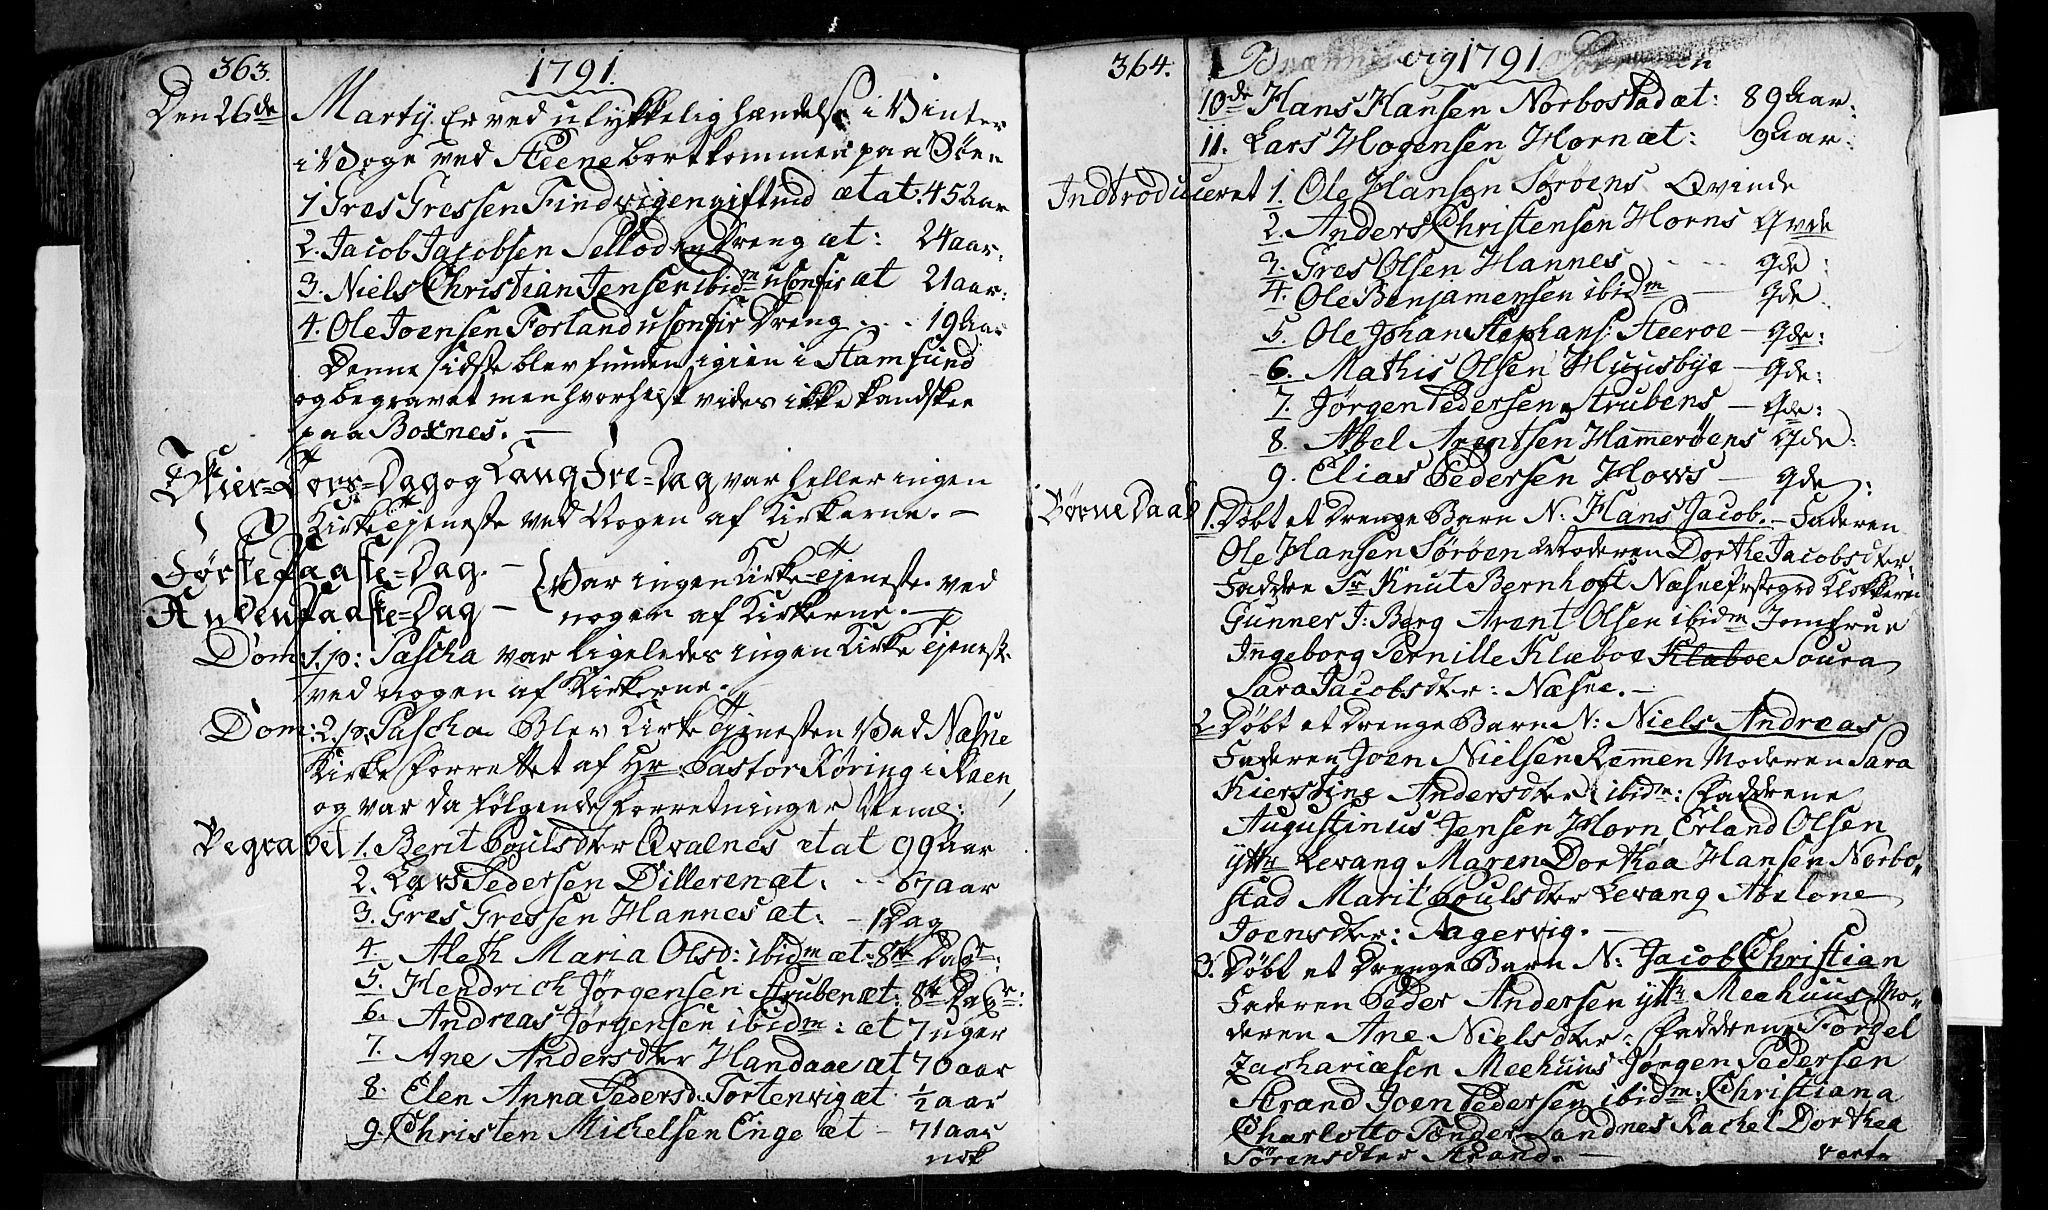 363.
1791.
Den 26de Martij. Er ved ulykkelig hændelse i Vinter
i Woge ved Steene bortkommen paa Søen
1 Gres Gressen Findvigen gift md ætat: 45 Aar
2. Jacob Jacobsen Selloden Dreng æt: 24 aar.
3. Niels Christian Jensen ibidm uconfir æt 21 aar:
4. Ole Joensen Forland uconfir Dreng . . . 19 Aar
Denne sidste blev funden igien i Stamsund
og begravet men hvorhelst vides ikke kandskee
paa Boxnes. —
Skier-Tors-Dag og Lang Fre-Dag var heller ingen
Kirke Tjeneste ved Nogen af Kirkerne. —
Første Paaske-Dag. —
Anden Paaske-Dag —
Var ingen Kirke-Tjeneste ved
nogen af Kirkerne. —
Dom: 1. p: Pascha var ligeledes ingen Kirke Tjeneste
ved nogen af Kirkerne. —
Dom: 2. p: Pascha Blev Kirke Tjenesten Ved Næsne
Kirke forrettet af Hr Pastor Røring i Raen,
og var da følgende forretninger Neml:
Begravet 1. Berit Poulsdter Qvalnes ætat 99 Aar
2. Lars Pedersen Dilleren æt. . . 67 aar
3. Gres Gressen Hannes æt: — 1 Dag
4. Aleth Maria Olsd: ibidm æt: 8te Dage:
5. Hendrich Jørgensen Struben æt: 8te Dage:
6. Andreas Jørgensen ibidm: æt 7 uger
7. Ane Andersdter Handaae æt 70 aar
8. Elen Anna Pedersd. Tortenvig æt ½ aar
9. Christen Michelsen Enge æt — 71 aar
nok
364.
1791.
10de Hans Hansen Norbostad æt: 89 Aar:
11. Lars Hogensen Horn æt: 9 Aar:
Indtroduceret 1. Ole Hansen Sørøens Qvinde
2. Anders Christensen Horns Qvde
3. Gres Olsen Hannes . . . qde:
4. Ole Benjamensen ibidm — qde
5. Ole Johan Stephans: Steeroe — qde:
6. Mathis Olsen Huusbye — qde:
7. Jørgen Pedersen Strubens — qde:
8. Abel Arentsen Hamerøens qde:
9. Elias Pedersen Hows — qde:
Børne Daab
1. Døbt et Drenge Barn N: Hans Jacob. — Faderen
Ole Hansen Sørøen Moderen Dorthe Jacobsdter
Faddre Sr Knut Bernhoft Næsne Præstegrd Klokkeren
Gunner J: Berg Arent Olsen ibidm Jomfrue
Ingeborg Pernille Klæboe Klæboe Soura
Sara Jacobsdter: Næsne. —
2 Døbt et Drenge Barn N: Niels Andreas
Faderen Joen Nielsen Remmen Moderen Sara
Kierstine Andersdter ibidm: Faddrene
Augustinus Jensen Horn Erland Olsen
yttr Levang Maren Dorthea Hansen Norbo-
stad Marit Poulsdter Levang Abelone
Joensdter: Aagervig. —
3. Døbt et Drenge Barn N: Jacob Christian
Faderen Peder Andersen yttr Meehuus Mo-
deren Ane Nielsdter: Faddrene Torgel
Zachariasen Meehuus Jørgen Pedersen
Strand Joen Pedersen ibidm: Christiana
Charlotto Tønder Sandnes Rachel Dorthea
Sørensdter Strand. —